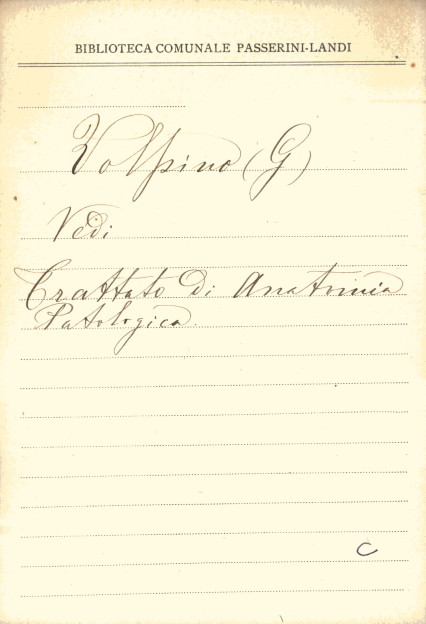 BIBLIOTECA COMUNALE PASSERINI-LANDI
Volpino (G)
Vedi
Trattato di Anatomia
Patologica
C